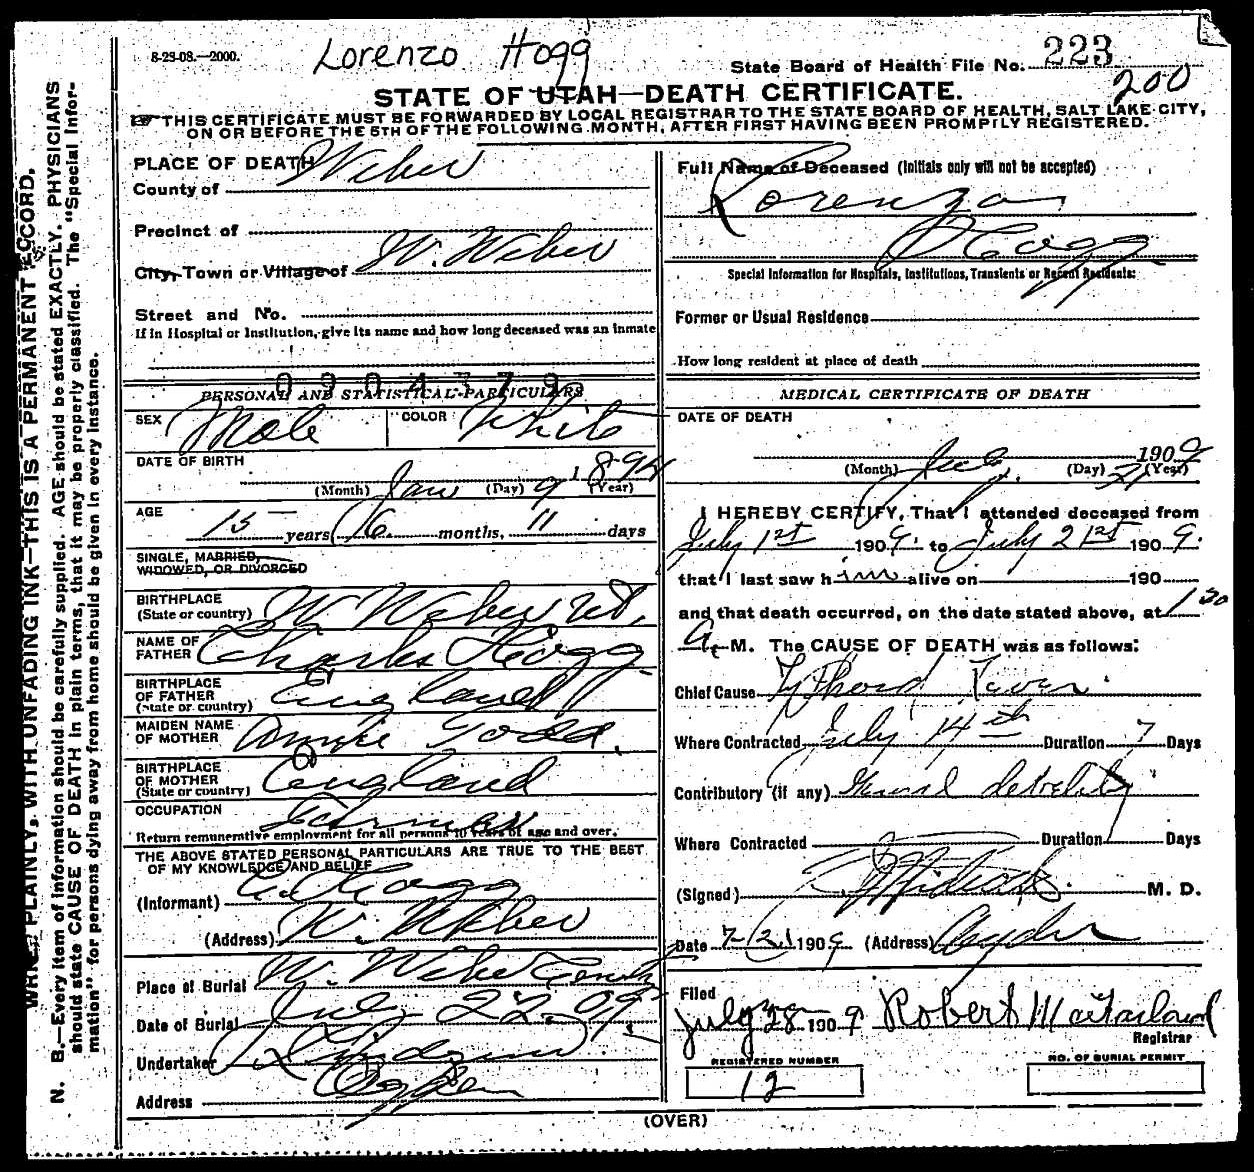 8-23-08.—2000.
Lorenzo Hogg
State Board of Health File No. 223
200
STATE OF UTAH—DEATH CERTIFICATE.
☞THIS CERTIFICATE MUST BE FORWARDED BY LOCAL REGISTRAR TO THE STATE BOARD OF HEALTH, SALT LAKE CITY,
ON OR BEFORE THE 5TH OF THE FOLLOWING MONTH, AFTER FIRST HAVING BEEN PROMPTLY REGISTERED.
N. B.—Every item of information should be carefully supplied. AGE should be stated EXACTLY. PHYSICIANS
should state CAUSE OF DEATH in plain terms, that it may be properly classified. The "Special Infor-
mation" for persons dying away from home should be given in every instance.
PLAINLY, WITH UNFADING INK—THIS IS A PERMANENT RECORD.
PLACE OF DEATH
County of Weber
Precinct of
City, Town or Village of W. Weber
Street and No.
If in Hospital or Institution, give its name and how long deceased was an inmate
0904379
PERSONAL AND STATISTICAL PARTICULARS
SEX Male COLOR White
DATE OF BIRTH
(Month) Jan (Day) 9 1894 (Year)
AGE
15 years 6 months, 11 days
SINGLE, MARRIED,
WIDOWED, OR DIVORCED
BIRTHPLACE
(State or country) W Weber Ut.
NAME OF
FATHER Charles Hogg
BIRTHPLACE
OF FATHER
(State or country) England
MAIDEN NAME
OF MOTHER Annie Todd.
BIRTHPLACE
OF MOTHER
(State or country) England
OCCUPATION Farmer
Return remunerative employment for all persons 10 years of age and over.
THE ABOVE STATED PERSONAL PARTICULARS ARE TRUE TO THE BEST
OF MY KNOWLEDGE AND BELIEF
(Informant) C. Hogg
(Address) W. Weber
Place of Burial W. Weber
Date of Burial July 22. 09
Undertaker
Address Ogden
Full Name of Deceased (Initials only will not be accepted)
Lorenzo
Hogg
Special Information for Hospitals, Institutions, Transients or Recent Residents:
Former or Usual Residence
How long resident at place of death
MEDICAL CERTIFICATE OF DEATH
DATE OF DEATH
(Month) July (Day) 21 1909 (Year)
I HEREBY CERTIFY, That I attended deceased from
July 1st 1909. to July 21st 1909.
that I last saw him alive on 190
and that death occurred, on the date stated above, at 1 30
A. M. The CAUSE OF DEATH was as follows:
Chief Cause Typhoid Fever
Where Contracted July 14th Duration 7 Days
Contributory (if any) General debility
Where Contracted Duration Days
(Signed) M. D.
Date 7/21 1909 (Address) Ogden
Filed
July 28 1909 Robert McFarland
Registrar
REGISTERED NUMBER
12
NO. OF BURIAL PERMIT
(OVER)